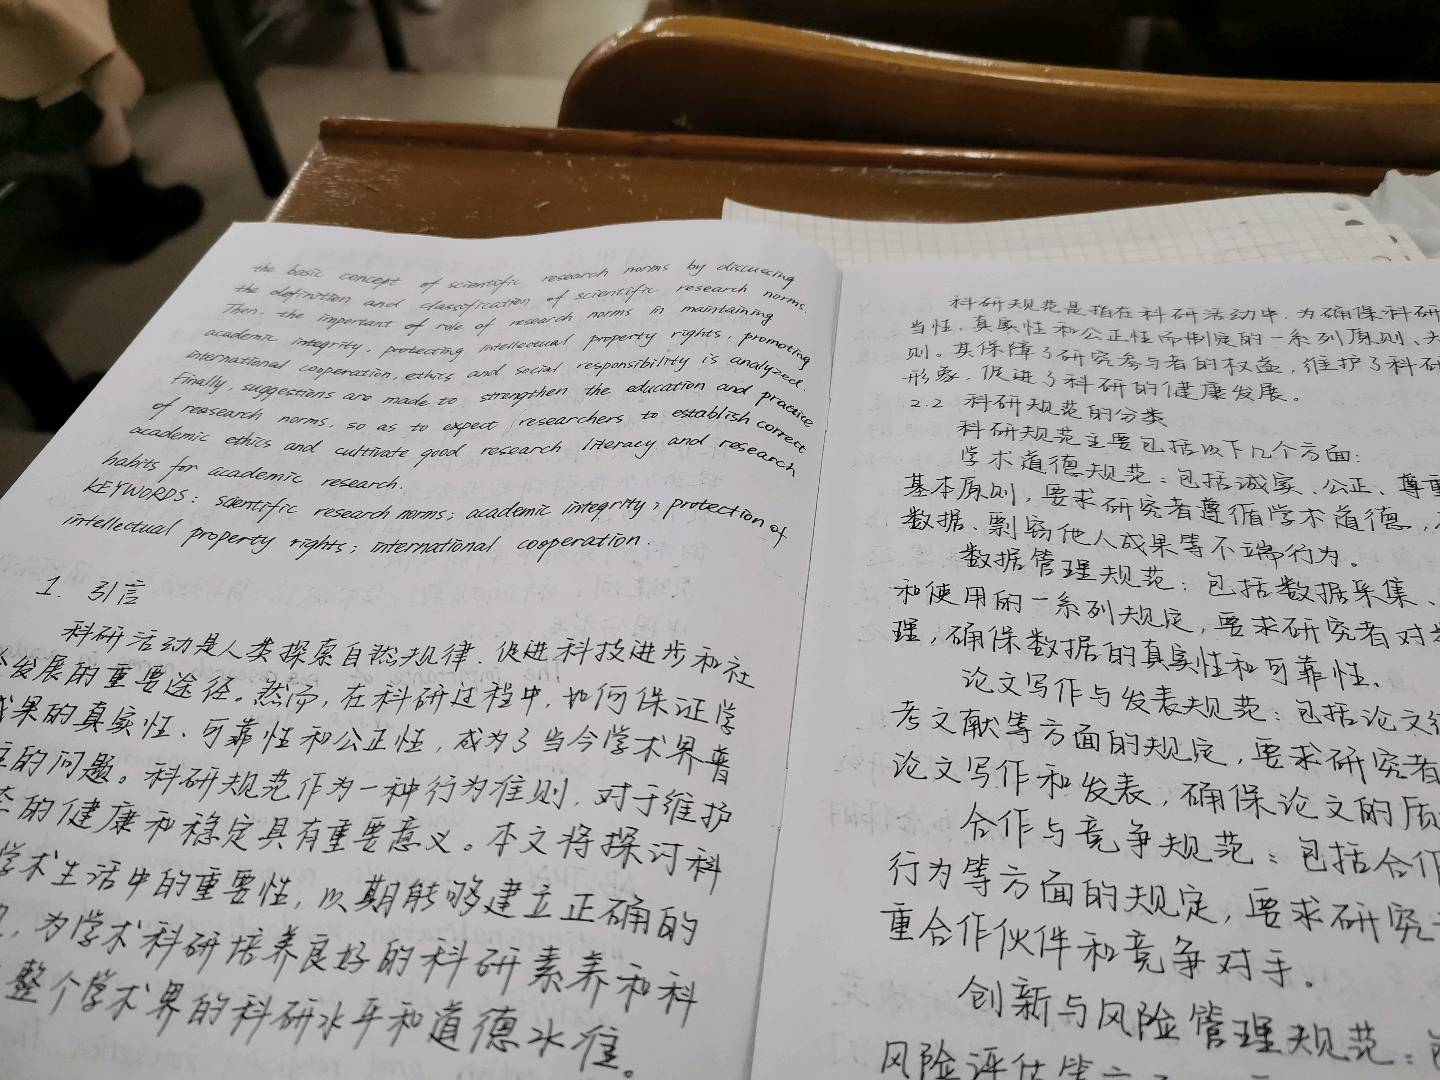 the basic concept of scientific research norms by discussing
the definition and classification of scientific research norms.
Then, the important of role of research norms in maintaining
academic integrity, protecting intellectual property rights, promoting
international cooperation, ethics and social responsibility is analyzed.
Finally, suggestions are made to strengthen the education and practice
of reasearch norms, so as to expect researchers to establish correct
academic ethics and cultivate good research literacy and research
habits for academic research.
KEYWORDS: scientific research norms; academic integrity; protection of
intellectual property rights; international cooperation.
1. 引言
科研活动是人类探索自然规律、促进科技进步和社
发展的重要途径。然而,在科研过程中,如何保证学
成果的真实性、可靠性和公正性,成为了当今学术界普
的问题。科研规范作为一种行为准则,对于维护
的健康和稳定具有重要意义。本文将探讨科
学术生活中的重要性,以期能够建立正确的
,为学术科研培养良好的科研素养和科
整个学术界的科研水平和道德水准。
科研规范是指在科研活动中,为确保科研
当性、真实性和公正性而制定的一系列原则、
则。其保障了研究参与者的权益,维护了科研
形象,促进了科研的健康发展。
2.2 科研规范的分类
科研规范主要包括以下几个方面:
学术道德规范:包括诚实、公正、尊重
基本原则,要求研究者遵循学术道德,
数据、剽窃他人成果等不端行为。
数据管理规范:包括数据采集、
和使用的一系列规定,要求研究者对
理,确保数据的真实性和可靠性。
论文写作与发表规范:包括论文
考文献等方面的规定,要求研究者
论文写作和发表,确保论文的质
合作与竞争规范:包括合作
行为等方面的规定,要求研究
重合作伙伴和竞争对手。
创新与风险管理规范:
风险评估等方